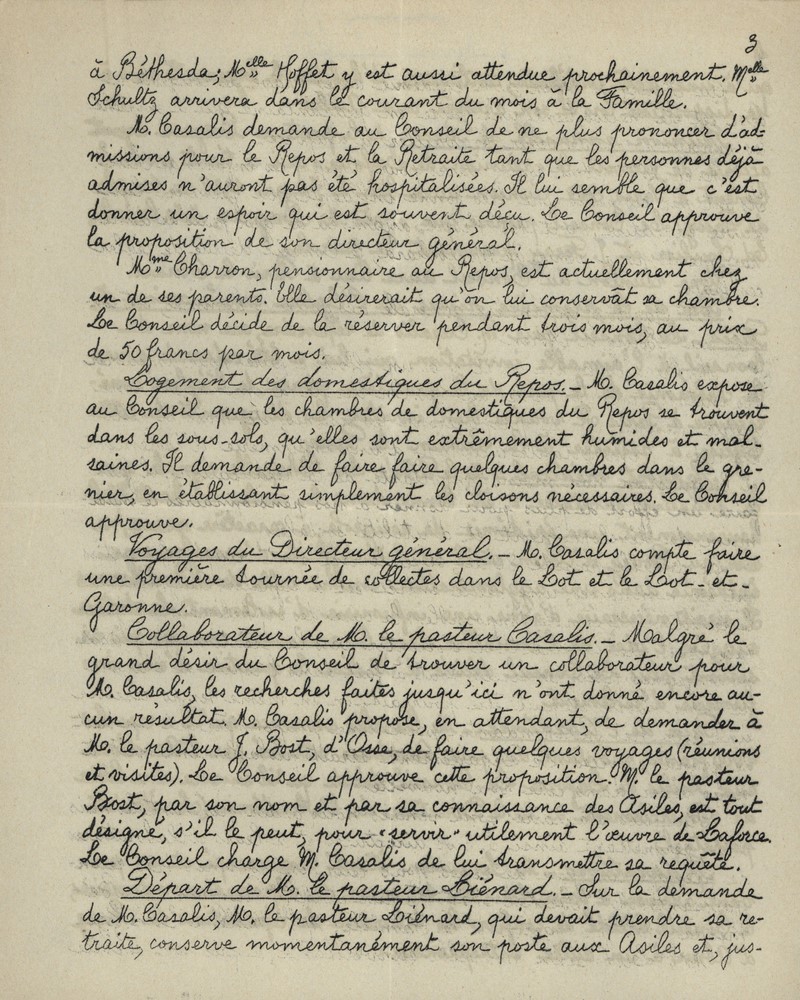 3
à Béthesda; Melle Hoffet y est aussi attendue prochainement. Melle
Schultz arrivera dans le courant du mois à la Famille.
M. Casalis demande au Conseil de ne plus prononcer d'ad-
missions pour le Repos et la Retraite tant que les personnes déjà
admises n'auront pas été hospitalisées. Il lui semble que c'est
donner un espoir qui est souvent déçu. Le Conseil approuve
la proposition de son directeur général.
Mme Charron, pensionnaire au Repos, est actuellement chez
un de ses parents. Elle désirerait qu'on lui conservât sa chambre.
Le Conseil décide de la réserver pendant trois mois, au prix
de 50 francs par mois.
Logement des domestiques du Repos. _ M. Casalis expose
au Conseil que les chambres de domestiques du Repos se trouvent
dans les sous-sols, qu'elles sont extrêmement humides et mal-
saines. Il demande de faire faire quelques chambres dans le gre-
nier, en établissant simplement les cloisons nécessaires. Le Conseil
approuve.
Voyages du Directeur général. _ M. Casalis compte faire
une première tournée de collectes dans le Lot et le Lot-et-
Garonne.
Collaborateur de M. le pasteur Casalis. _ Malgré le
grand désir du Conseil de trouver un collaborateur pour
M. Casalis, les recherches faites jusqu'ici n'ont donné encore au-
cun résultat. M. Casalis propose, en attendant, de demander à
M. le pasteur J. Bost, d'Osse, de faire quelques voyages (réunions
et visites). Le Conseil approuve cette proposition. M. le pasteur
Bost, par son nom et par sa connaissance des Asiles, est tout
désigné, s'il le peut, pour "servir" utilement l'œuvre de Laforce.
Le Conseil charge M. Casalis de lui transmettre sa requête.
Départ de M. le pasteur Liénard. _ Sur la demande
de M. Casalis, M. le pasteur Liénard, qui devait prendre sa re-
traite, conserve momentanément son poste aux Asiles et, jus-